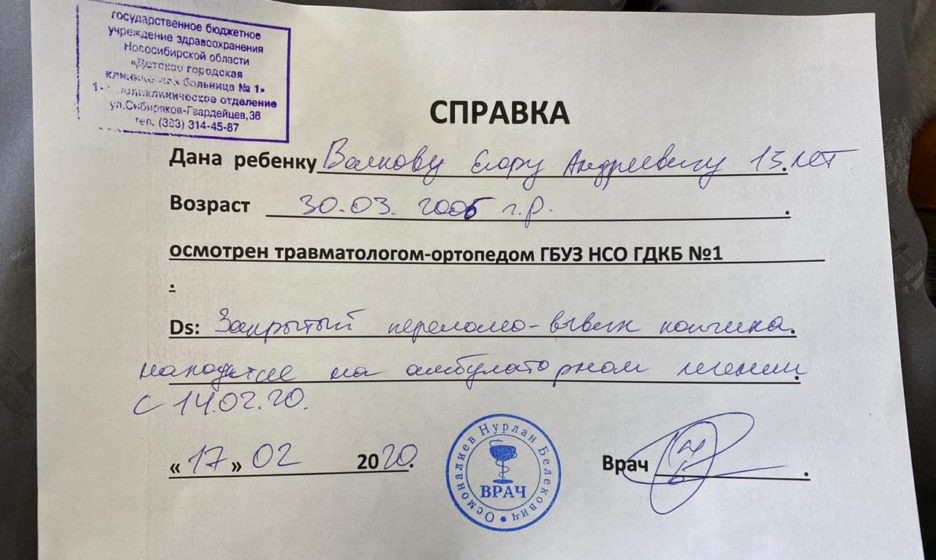 государственное бюджетное
учреждение здравоохранения
Новосибирской области
«Детская городская
клиническая больница № 1»
поликлиническое отделение
ул.Сибиряков-Гвардейцев,36
тел. (383) 314-45-87
СПРАВКА
Дана ребенку Волкову Егору Андреевичу 13 лет
Возраст 30.03. 2006 г.р.
осмотрен травматологом-ортопедом ГБУЗ НСО ГДКБ №1
.
Ds: Закрытый переломо-вывих копчика.
находится на амбулаторном лечении
с 14.02.20.
«17» 02 2020.
Врач
Осмоналиев Нурлан Белекович
ВРАЧ